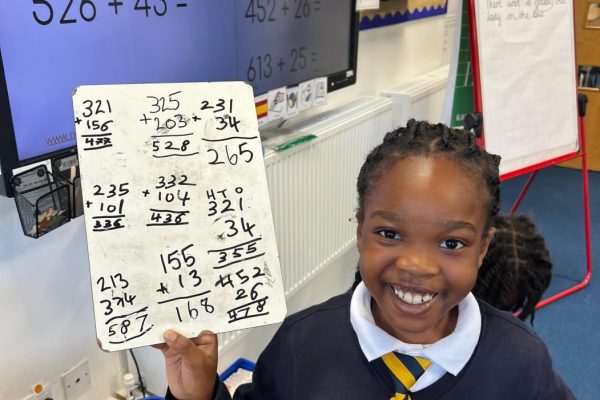 526 + 43 =
452 + 26 =
613 + 25 =
321
+156
477
325
+203
528
231
+ 34
265
235
+101
336
332
+104
436
HTO
321
+34
355
213
374
587
155
+ 13
168
452
26
478
There was a
lady on the bus